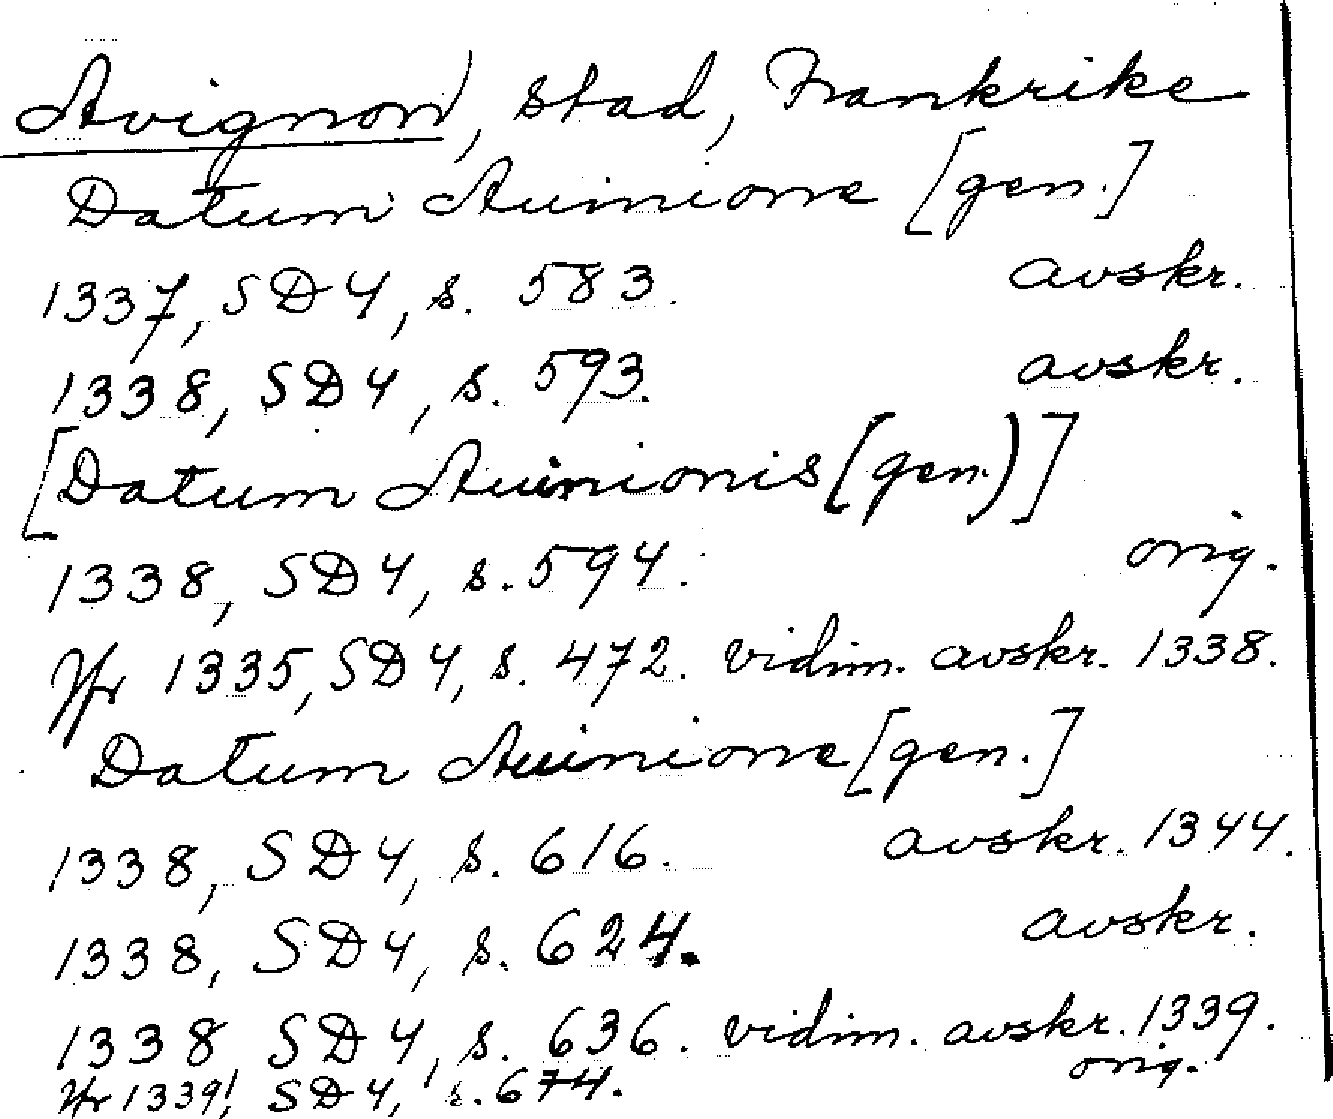 Avignon, stad, Frankrike
Datum Auinione [gen.]
1337, SD 4, s. 583. avskr.
1338, SD 4, s. 593. avskr.
[Datum Auinionis (gen.)]
1338, SD 4, s. 594. orig.
Jfr 1335, SD 4, s. 472. vidim. avskr. 1338.
Datum Auinione [gen.]
1338, SD 4, s. 616. avskr. 1344.
1338, SD 4, s. 624. avskr.
1338 SD 4, s. 636. vidim. avskr. 1339.
Jfr 1339!, SD 4, s. 674. orig.